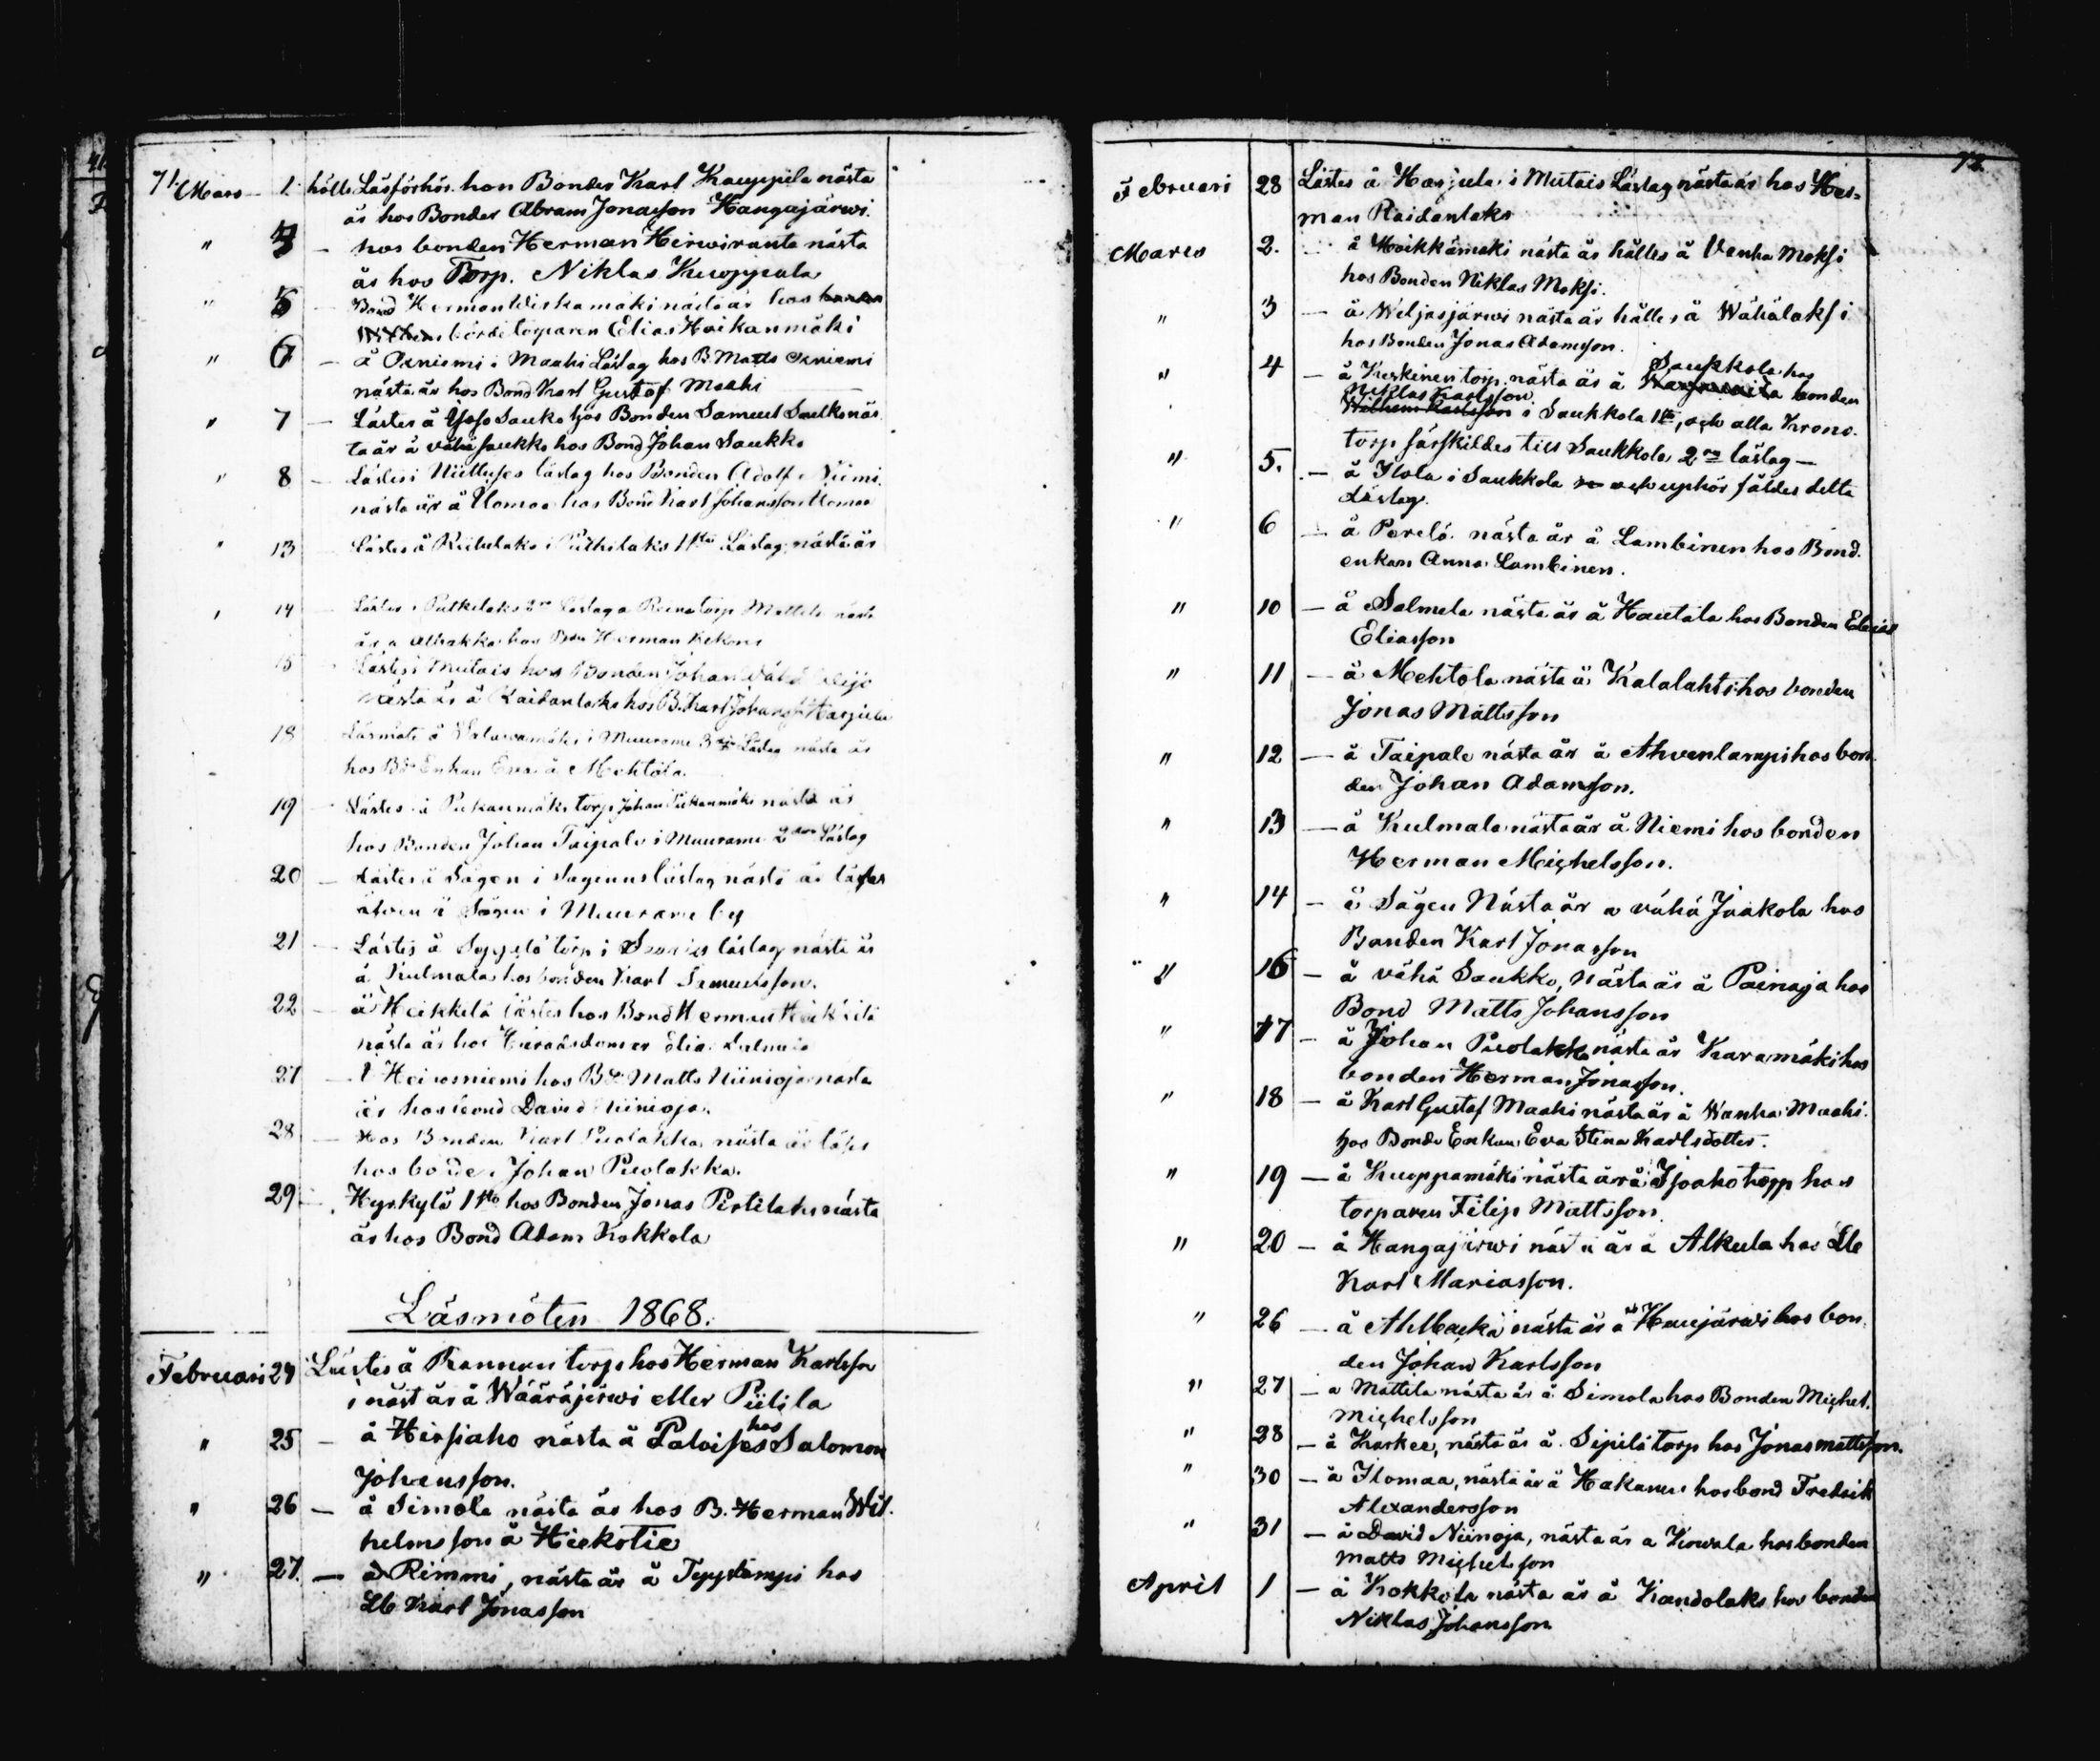 71.
Mars 1. hölls Läsförhör hon Bonden Karl Kauppila nästa
år hos Bonden Abram Jonasson Hangajärwi.
" 3 — hos bonden Herman Hirwiranta nästa
år hos Torp. Niklas Kuoppala
" 5 — Bond Herman nästa år hos bonden
torparen Elias Haikanmäki
" 6 — å Oxniemi i Maahi Läslag hos B. Matts Oxniemi
nästa år hos Bond Karl Gustaf Maahi
" 7 — Lästes å Joso Sauko hos Bonden Samuel Saukko näs
ta år å vähä Saukko hos Bond Johan Saukko
" 8 — Lästes i läslag hos Bonden Adolf Niemi
nästa år å Ilomaa hos Bond Karl Johansson Ilomaa
" 13 Lästes å i 1sta Läslag, nästa år
" 14 Lästes i Putkilaks 2ra Läslag å torp Mattila nästa
år å Alhakka hos Bon Herman
15 Lästes i Mutais hos Bonden Johan Vähä
nästa år å Raidanlaks hos B. Karl Johansson Harjula
18 Läsmöte å i Muurame 3dje Läslag nästa år
hos Bde Enkan Eva å Mehtola
19 Lästes å Pukanmäki torp Johan Pukanmäki nästa år
hos Bonden Johan Taipale i Muurame 2dra Läslag
20 — Lästes å Sågen i Sagenns läslag nästa år läses
äfven å Sågen i Muurame by
21 — Lästes å torp i läslag nästa år
å Kulmala hos bonden Karl Samuelsson.
22 — å Heikkilä lästes hos Bond Herman Heikkilä
nästa år hos Häradsdomar Elia Salmela
27 — Å Heinosniemi hos Bde Matts Niinioja nästa
år hos bond David Niinioja.
28 — Hos Bonden Karl Puolakka nästa år läses
hos bonden Johan Puolakka.
29 — Hyrkylä 1sta hos Bonden Jonas Pertilaks nästa
år hos Bond Adam Kokkola
Läsmöten 1868.
Februari 24 Lästes å Rannan torp hos Herman Karlsson
näst år å Wääräjerwi eller Piilila
" 25 — å Hirsiaho nästa å Paloises hos Salomon
Johansson.
" 26 — å Simola nästa år hos B. Herman Wil-
helmsson å Hiekotie
" 27. — å Rimmi, nästa år å Tyyslampi hos
Lb Karl Jonasson
72.
Februari 28 Lästes å Harjula i Mutais Läslag nästa år hos Her-
man Raidanlaks
Mars 2. å Haikkämäki nästa år hålles å Vanha Moksi
hos Bonden Niklas Moksi.
" 3 — å Weljasjärwi nästa år hålles å Wähälaksi
hos Bonden Jonas Adamsson.
" 4 — å Keskinen torp, nästa år å Saukkola hos bonden
Niklas Karlsson
Wilhelm Karlsson i Saukkola 1sta, och alla Krono-
torp särskildes till Saukkola 2ra läslag —
" 5. — å Ilola i Saukkola och upphör således detta
Läslag.
" 6 — å Perelä nästa år å Lambinen hos Bond.
enkan Anna Lambinen.
" 10 — å Salmela nästa år å Hautala hos Bonden Elias
Eliasson
" 11 — å Mehtola nästa å Kalalahti hos bonden
Jonas Mattsson
" 12 — å Taipale nästa år å Ahvenlampi hos bon
den Johan Adamsson.
" 13 — å Kulmala nästa år å Niemi hos bonden
Herman Michelsson.
" 14 — å Sågen Nästa år å vähä Jaakola hos
Bonden Karl Jonasson
" 16 — å vähä Saukko, Nästa år å Painaja hos
Bond Matts Johansson
" 17 — å Johan Puolakka nästa år Karamäki hos
bonden Herman Jonasson.
" 18 — å Karl Gustaf Maahi nästa år å Wanha Maahi.
hos Bonde Enkan Eva Stina Karlsdotter.
" 19 — å Kuoppamäki nästa år å Isoaho torpp hos
torparen Filip Mattsson.
" 20 — å Hangajärwi nästa år å Alkula hos Lb
Karl Mariasson.
" 26 — å Ahlbacka nästa år å Haujärwi hos bon
den Johan Karlsson
" 27 — å Mattila nästa år å Simola hos Bonden Michel.
Michelsson
" 28 — å Karkee, nästa år å Sipilä torp hos Jonas Mattsson.
" 30 — å Ilomaa, nästa år å Hakanen hos bond Fredrik
Alexandersson
" 31 — å David Niinoja, nästa år å Kowala hos bonden
Matts Michelsson
April 1 — å Kokkola nästa år å Kandolaks hos bonden
Niklas Johansson